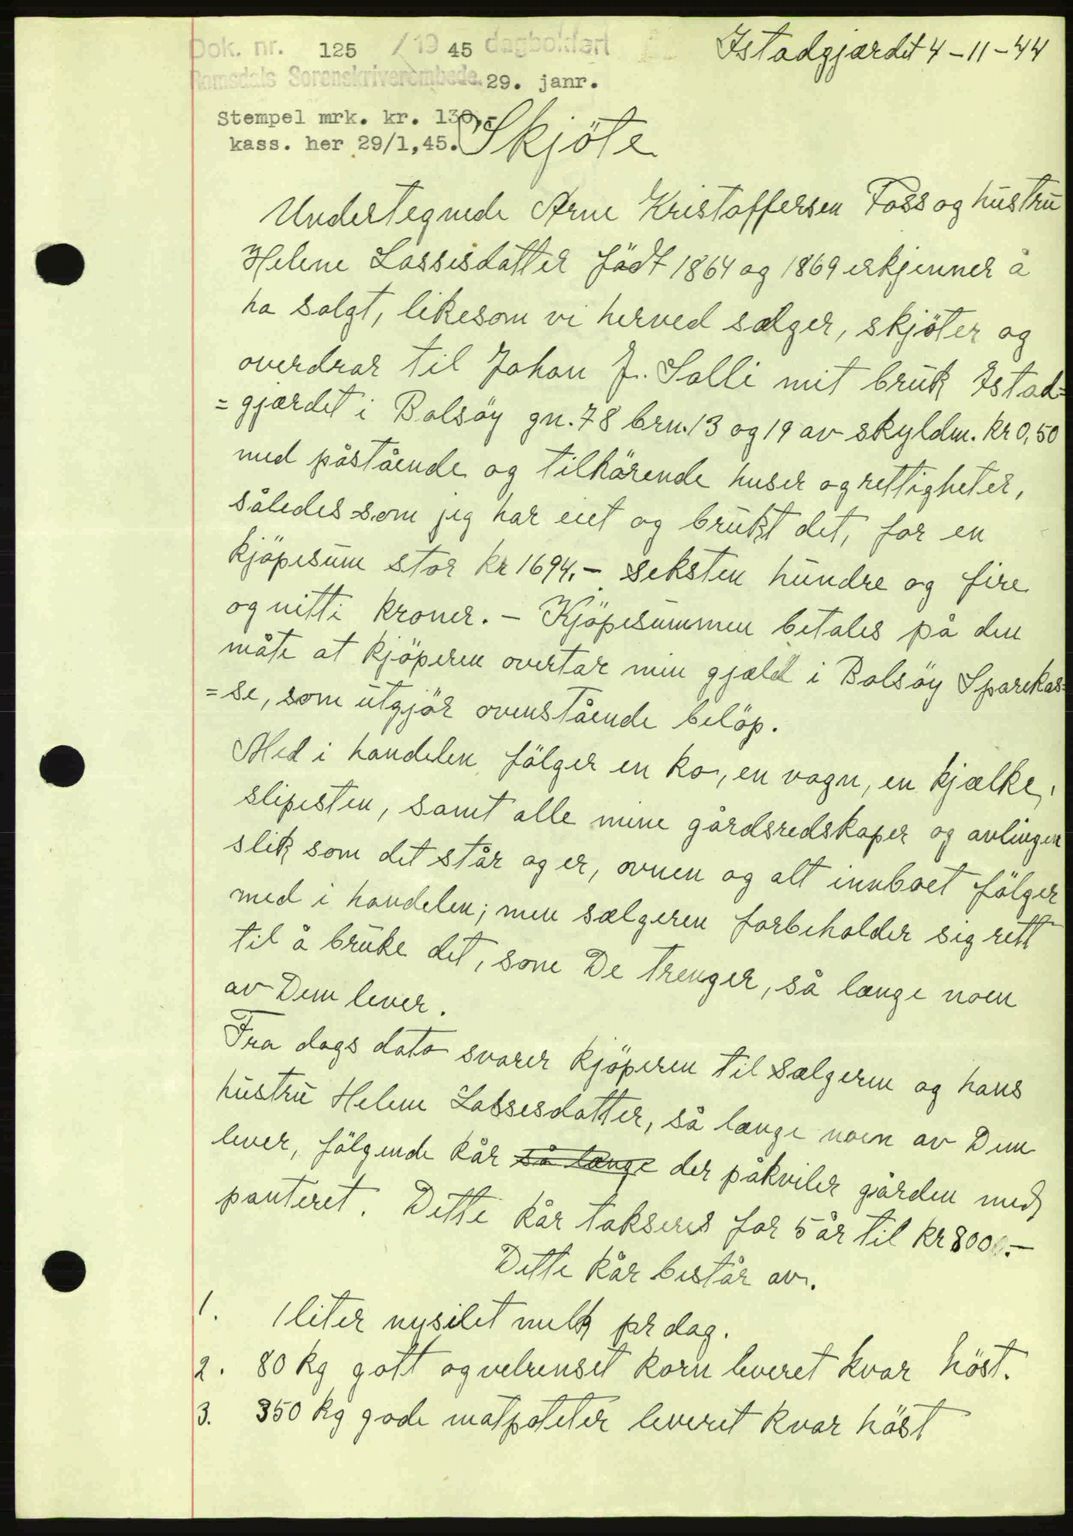 Dok. nr. 125 / 19 45 dagbokført
Romsdals Sorenskriverembede. 29. janr.
Istadgjærdet 4-11-44
Stempel mrk. kr. 130,-
kass. her 29/1,45.
Skjöte
Undertegnede Arne Kristoffersen Foss og hustru
Helene Lassesdatter född 1864 og 1869 erkjenner å
ha solgt, likesom vi herved sælger, skjöter og
overdrar til Johan J. Salli mit bruk Istad=
=gjærdet i Bolsöy gn. 78 brn. 13 og 19 av skyldm. kr 0,50
med påstående og tilhörende huser og rettigheter,
således som jeg har eiet og brukt det, for en
kjöpesum stor kr 1694.- seksten hundre og fire
og nitti kroner. - Kjöpesummen betales på den
måte at kjöperen overtar min gjæld i Bolsöy Sparekas=
=se, som utgjör ovenstående belöp.
Med i handelen fölger en ko, en vogn, en kjælke,
slipesten, samt alle mine gårdsredskaper og avlingen
slik som det står og er, ovnen og alt innboet fölger
med i handelen; men sælgeren forbeholder sig rett
til å bruke det, som De trenger, så længe noen
av Dem lever.
Fra dags dato svarer kjöperen til sælgeren og hans
hustru Helene Lassesdatter, så længe noen av Dem
lever, fölgende kår så længe der påkviler gården med
panteret. Dette kår takseres for 5 år til kr 800.-
Dette kår består av.
1. 1 liter nysilet melk pr dag.
2. 80 kg gott og velrenset korn leveret kvar höst.
3. 350 kg gode matpoteter leveret kvar höst